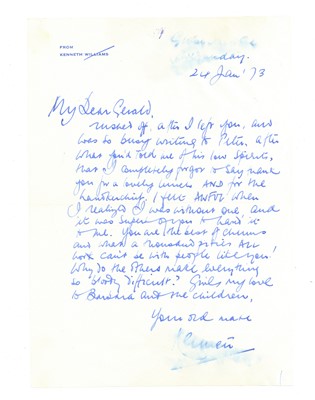 FROM
KENNETH WILLIAMS
day.
24 Jan' 73
My Dear Gerald,
rushed off, after I left you, and
was so busy writing to Peter, after
what you'd told me of his low spirits,
that I completely forgot to say thank
you for a lovely dinner AND for the
handkerchief, I FELT AWFUL when
I realised I was without one, and
it was super of you to hand it
to me. You are the best of chums
and what a thousand pities ALL
work can't be with people like you!
Why do the others make everything
so bloody difficult? Give my love
to Barbara and the children,
Your old mate